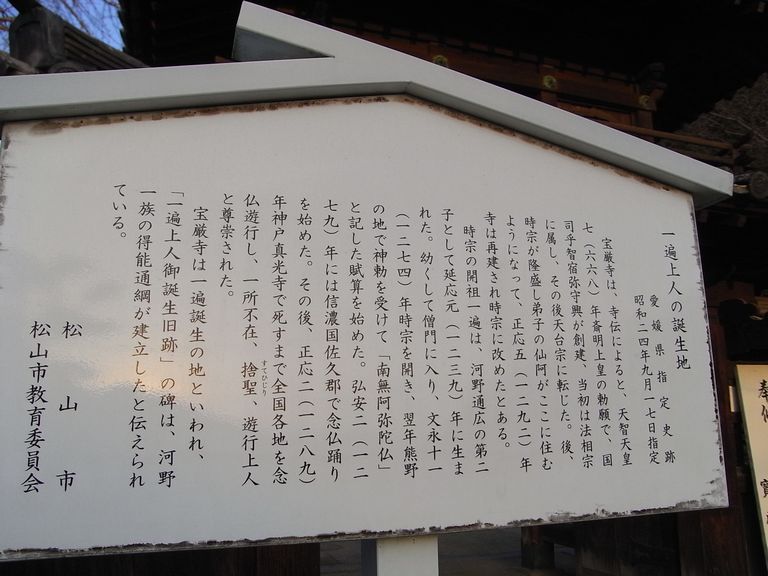 一遍上人の誕生地
愛媛県指定史跡
昭和二四年九月一七日指定
宝厳寺は、寺伝によると、天智天皇
七（六六八）年斎明上皇の勅願で、国
司乎智宿弥守興が創建、当初は法相宗
に属し、その後天台宗に転じた。後、
時宗が隆盛し弟子の仙阿がここに住む
ようになって、正応五（一二九二）年
寺は再建され時宗に改めたとある。
時宗の開祖一遍は、河野通広の第二
子として延応元（一二三九）年に生ま
れた。幼くして僧門に入り、文永十一
（一二七四）年時宗を開き、翌年熊野
の地で神勅を受けて「南無阿弥陀仏」
と記した賦算を始めた。弘安二（一二
七九）年には信濃国佐久郡で念仏踊り
を始めた。その後、正応二（一二八九）
年神戸真光寺で死すまで全国各地を念
仏遊行し、一所不在、捨聖、遊行上人
すてひじり
と尊崇された。
宝厳寺は一遍誕生の地といわれ、
「一遍上人御誕生旧跡」の碑は、河野
一族の得能通綱が建立したと伝えられ
ている。
松山市
松山市教育委員会